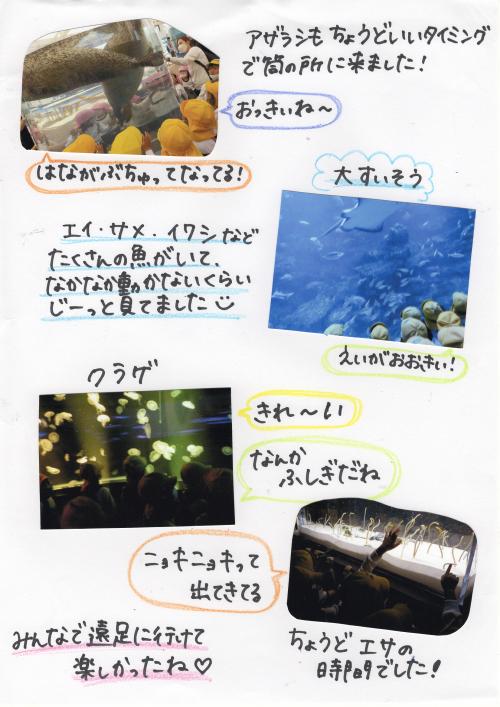 アザラシもちょうどいいタイミング
で筒の所に来ました!
おっきいね〜
はながぶちゅってなってる!
大すいそう
エイ・サメ・イワシなど
たくさんの魚がいて、
なかなか動かないくらい
じーっと見てました
えいがおおきい!
クラゲ
きれ〜い
なんか
ふしぎだね
ニョキニョキって
出てきてる
みんなで遠足に行けて
楽しかったね♡
ちょうど エサの
時間でした!